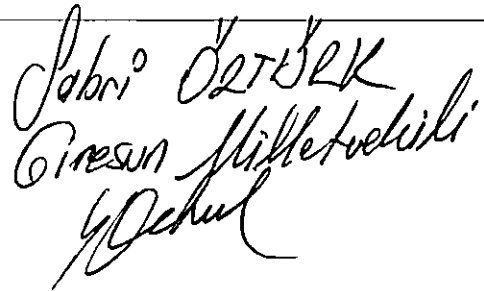 Sabri ÖZTÜRK
Giresun Milletvekili